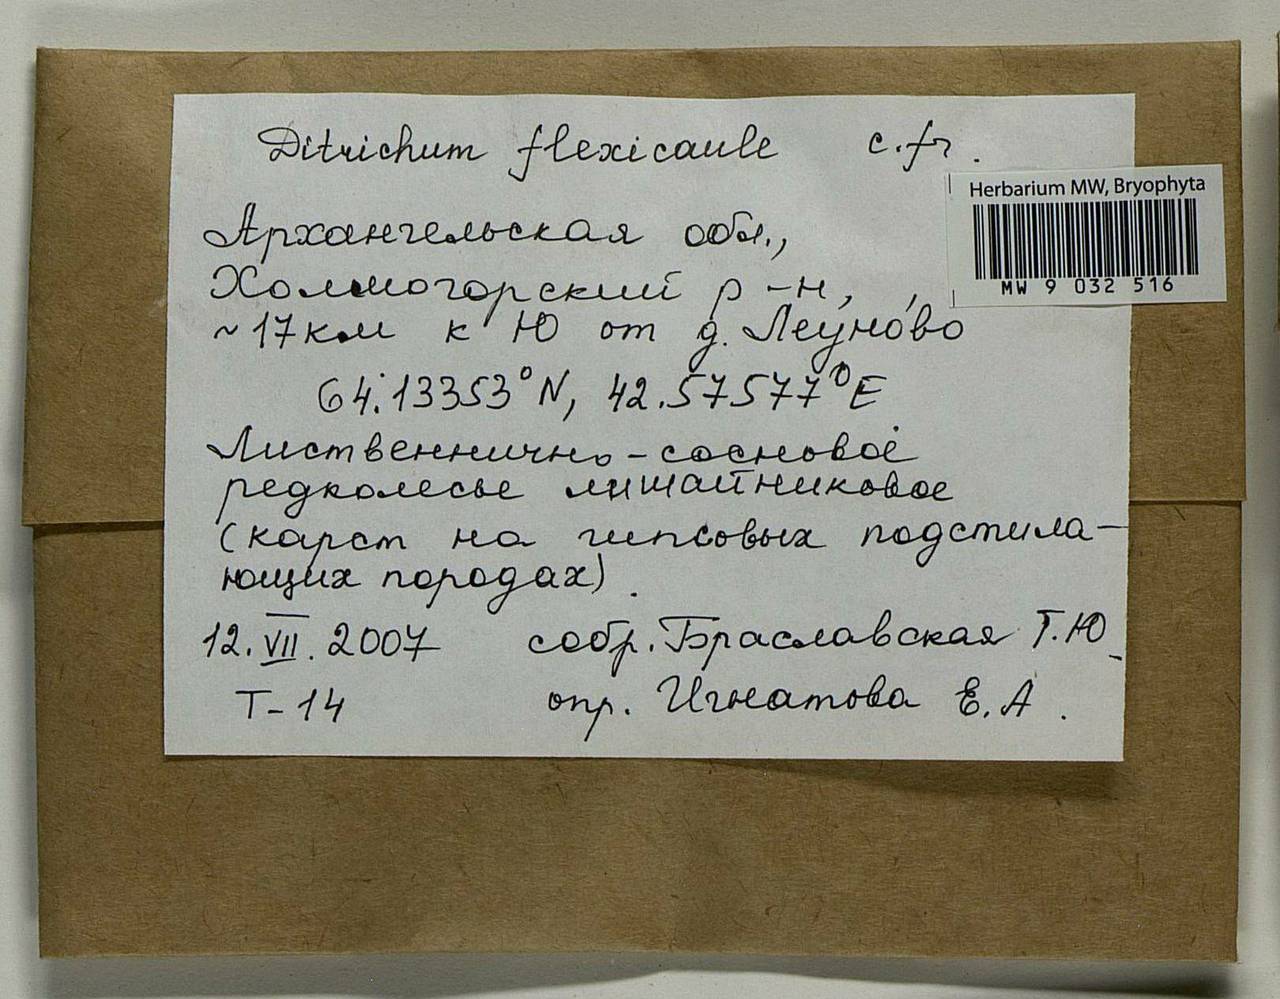 Ditrichum flexicaule c.fr.
Herbarium MW, Bryophyta
MW 9 032 516
Архангельская обл.,
Холмогорский р-н,
~17км к Ю от д. Леуново
64.13353°N, 42.57577°E
Лиственнично-сосновое
редколесье лишайниковое
(карст на гипсовых подстила-
ющих породах).
12.VII.2007 собр. Браславская Т.Ю.
Т-14 опр. Игнатова Е.А.